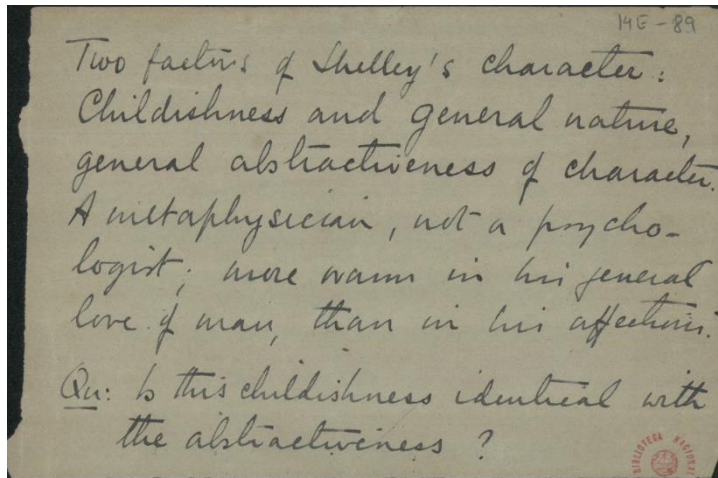 14E-89
Two factors of Shelley's character:
Childishness and general nature,
general abstractiveness of character.
A metaphysician, not a psycho-
logist; more warm in his general
love of man, than in his affections.
Qu: Is this childishness identical with
the abstractiveness?
BIBLIOTECA NACIONAL